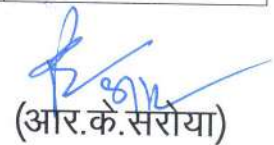 (आर.के.सरोया)